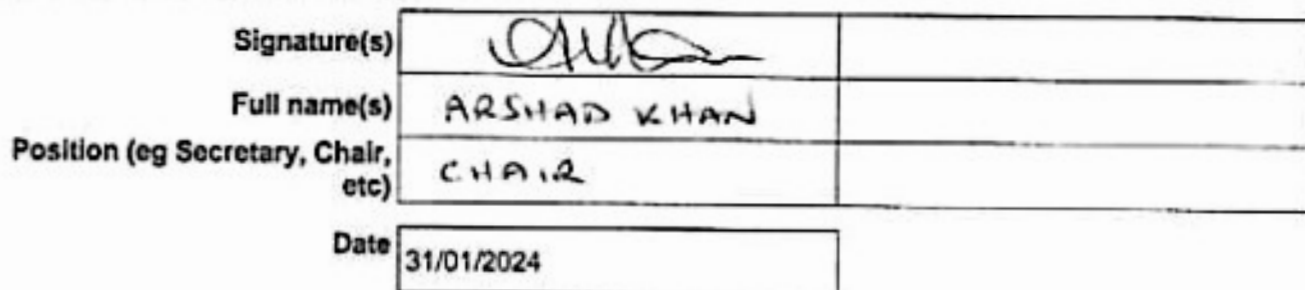 Signature(s)
Full name(s) ARSHAD KHAN
Position (eg Secretary, Chair,
etc) CHAIR
Date 31/01/2024